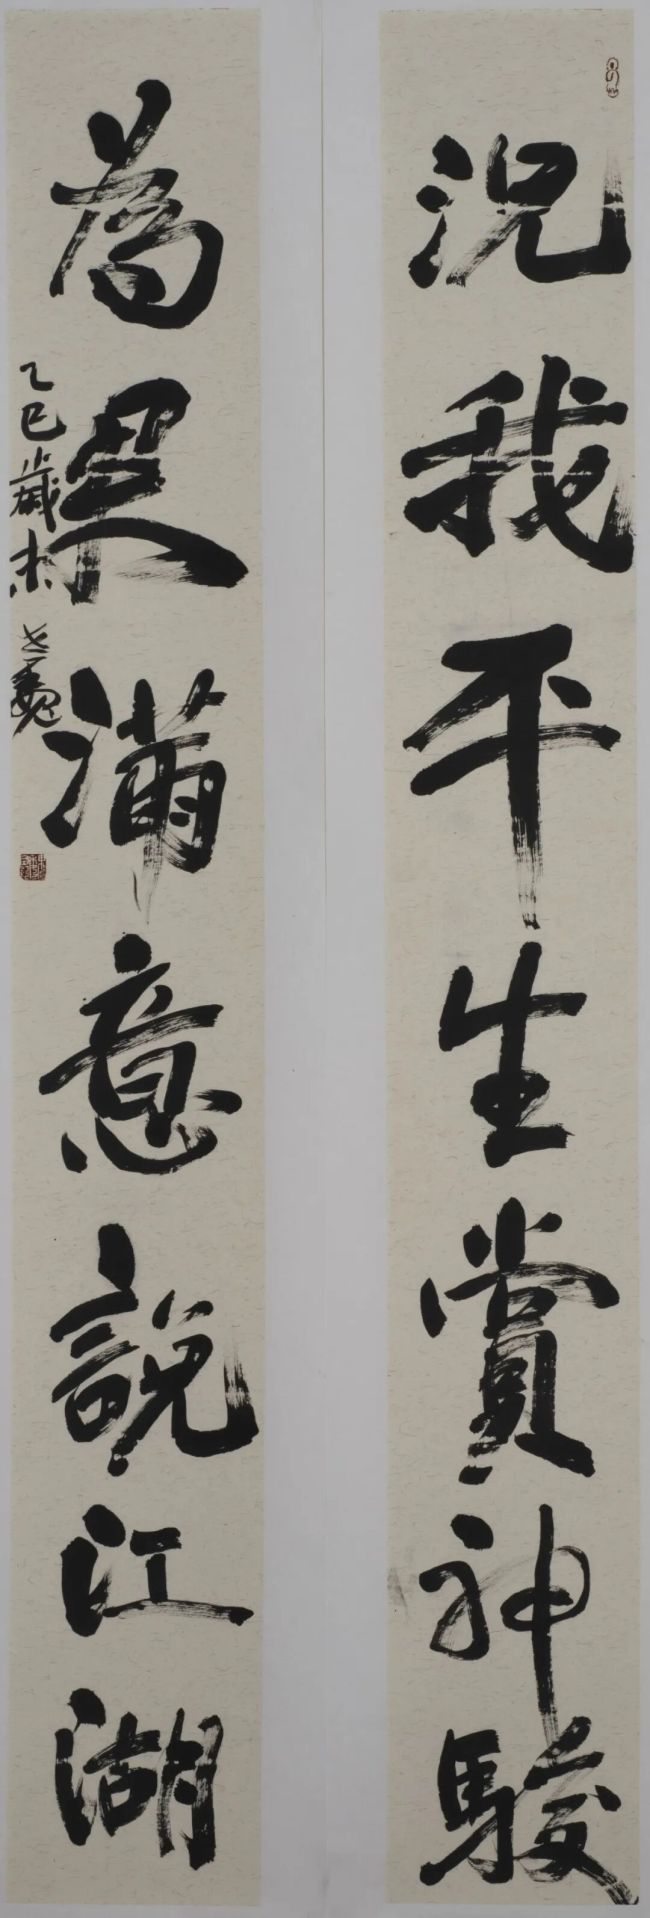 況我平生賞神駿
為滿意說江湖
乙巳歲